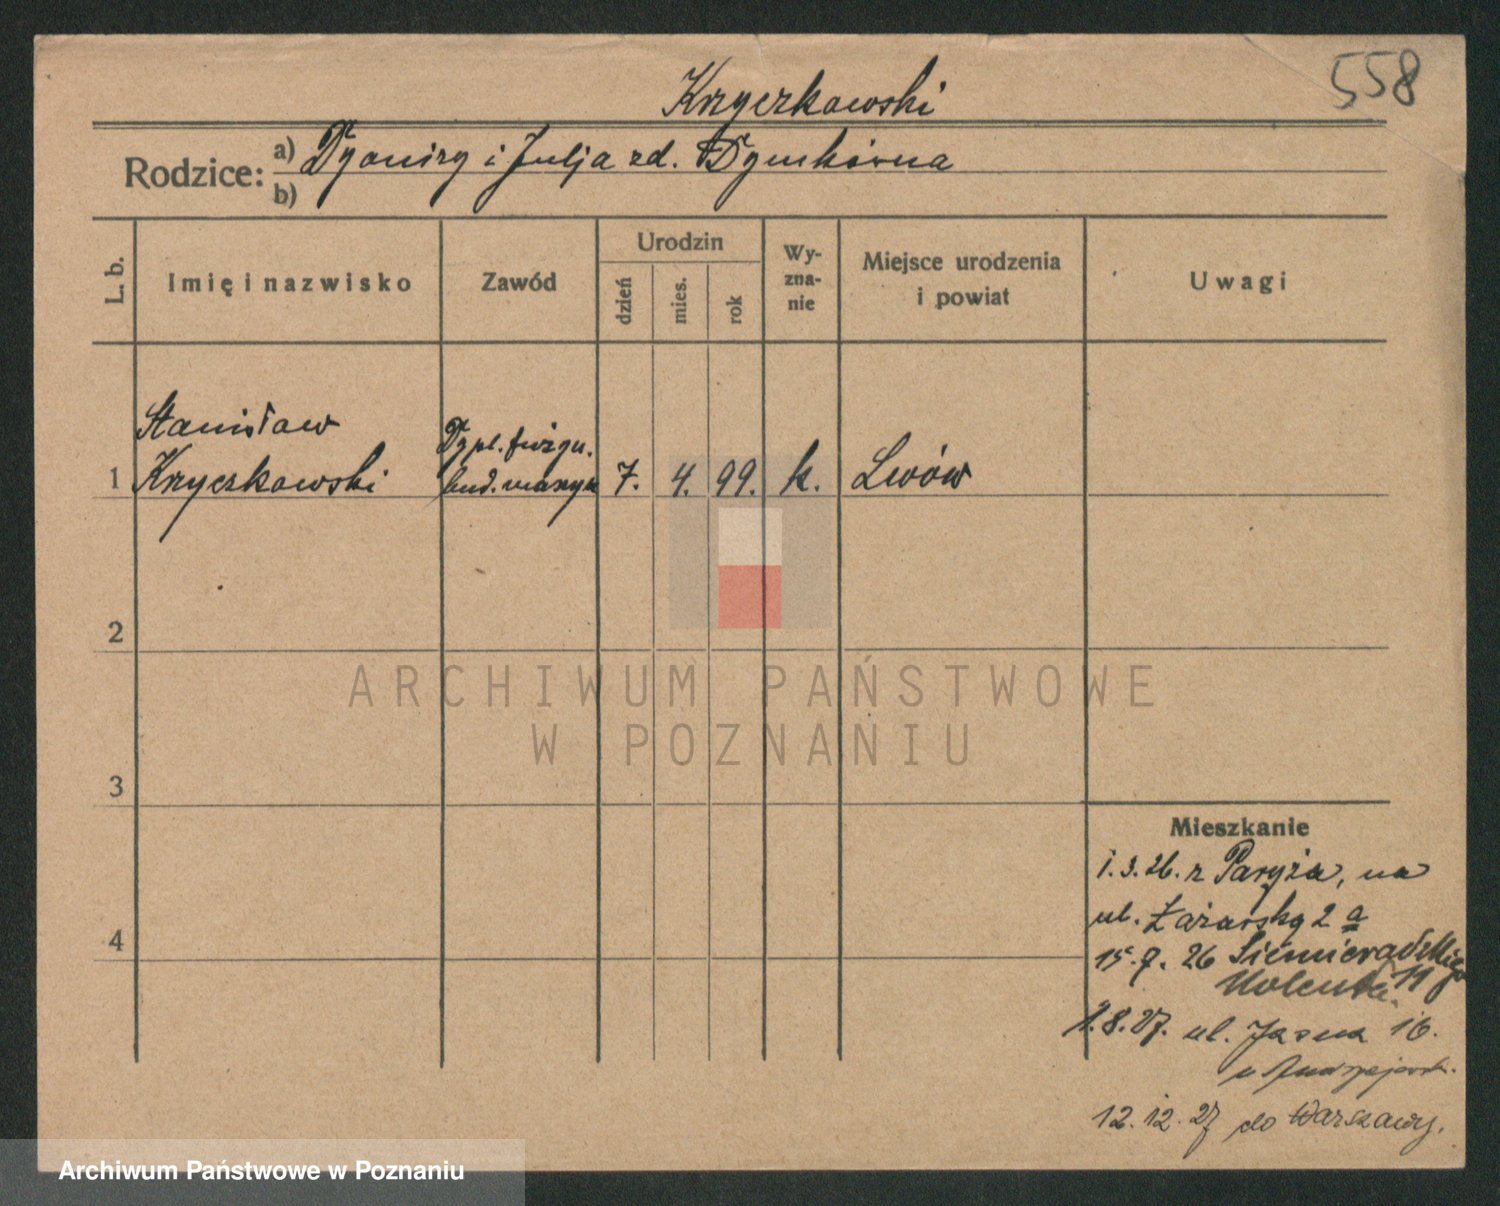 558
Krzyczkowski
Rodzice: a) Dyonizy i Julja zd.
b)
L. b.
Imię i nazwisko
Zawód
Urodzin
dzień
mies.
rok
Wy-
zna-
nie
Miejsce urodzenia
i powiat
Uwagi
Stanisław
Dypl. inżyn.
1 Krzyczkowski bud. maszyn 7. 4. 99. k. Lwów
2
3
4
ARCHIWUM PAŃSTWOWE
W POZNANIU
Mieszkanie
1.3.26. z Paryża, na
ul. 2 a
15.7. 26 Siemieradzkiego
11
1.8.27. ul. Jasna 16.
u
12.12.27 do Warszawy.
Archiwum Państwowe w Poznaniu